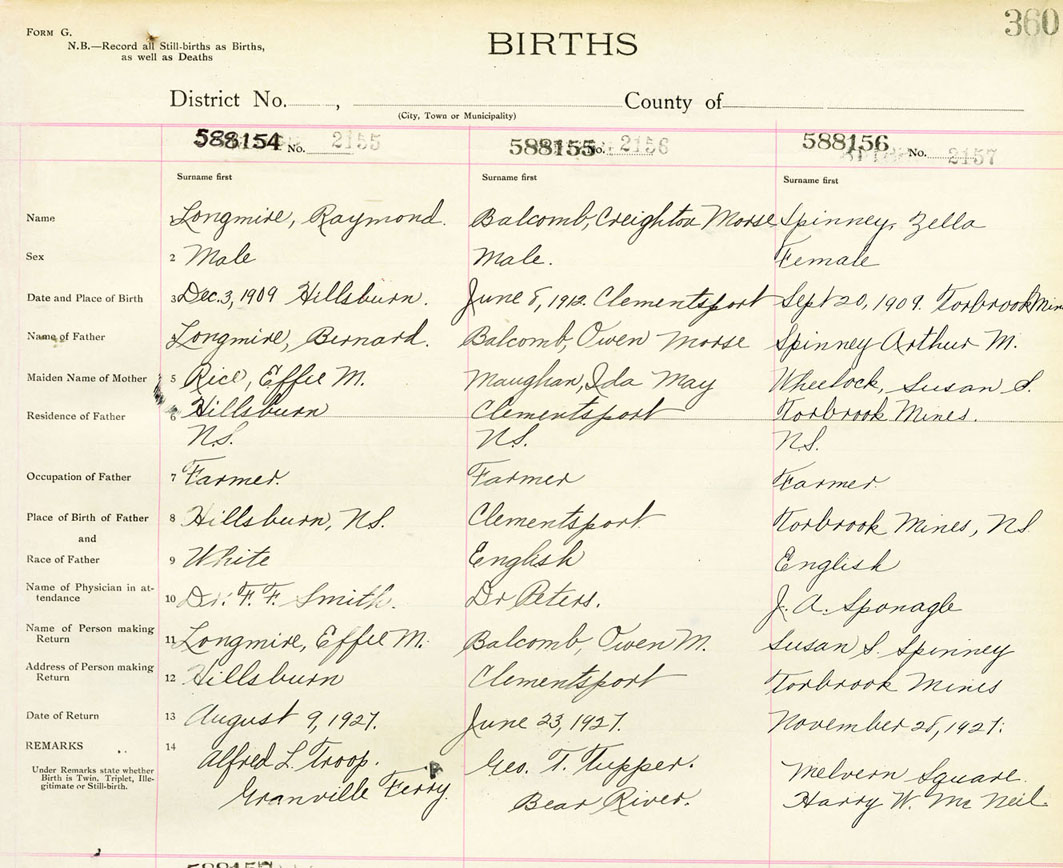 FORM G.
360
N.B.—Record all Still-births as Births,
as well as Deaths
BIRTHS
District No. , County of
(City, Town or Municipality)
588154 No. 2155 588155 No. 2156 588156 No. 2157
Surname first Surname first Surname first
Name Longmire, Raymond. Balcomb, Creighton Morse Spinney, Zella
Sex 2 Male Male. Female
Date and Place of Birth 3 Dec. 3, 1909 Hillsburn. June 8, 1912. Clementsport Sept 20, 1909. Torbrook Min
Name of Father 4 Longmire, Bernard. Balcomb, Owen Morse Spinney Arthur M.
Maiden Name of Mother 5 Rice, Effie M. Maughan, Ida May Wheelock, Susan S.
Residence of Father 6 Hillsburn Clementsport Torbrook Mines.
N.S. N.S. N.S.
Occupation of Father 7 Farmer. Farmer Farmer
Place of Birth of Father 8 Hillsburn, N.S. Clementsport Torbrook Mines, N.S.
and
Race of Father 9 White English English
Name of Physician in at-
tendance 10 Dr. F. F. Smith. Dr Peters. J. A. Sponagle
Name of Person making
Return 11 Longmire, Effie M. Balcomb, Owen M. Susan S. Spinney
Address of Person making
Return 12 Hillsburn Clementsport Torbrook Mines
Date of Return 13 August 9, 1927. June 23, 1927. November 28, 1927.
REMARKS 14 Alfred L. Troop. Geo. T. Tupper. Melvern Square.
Under Remarks state whether
Birth is Twin, Triplet, Ille-
gitimate or Still-birth.
Granville Ferry. Bear River. Harry W. Mc Neil.